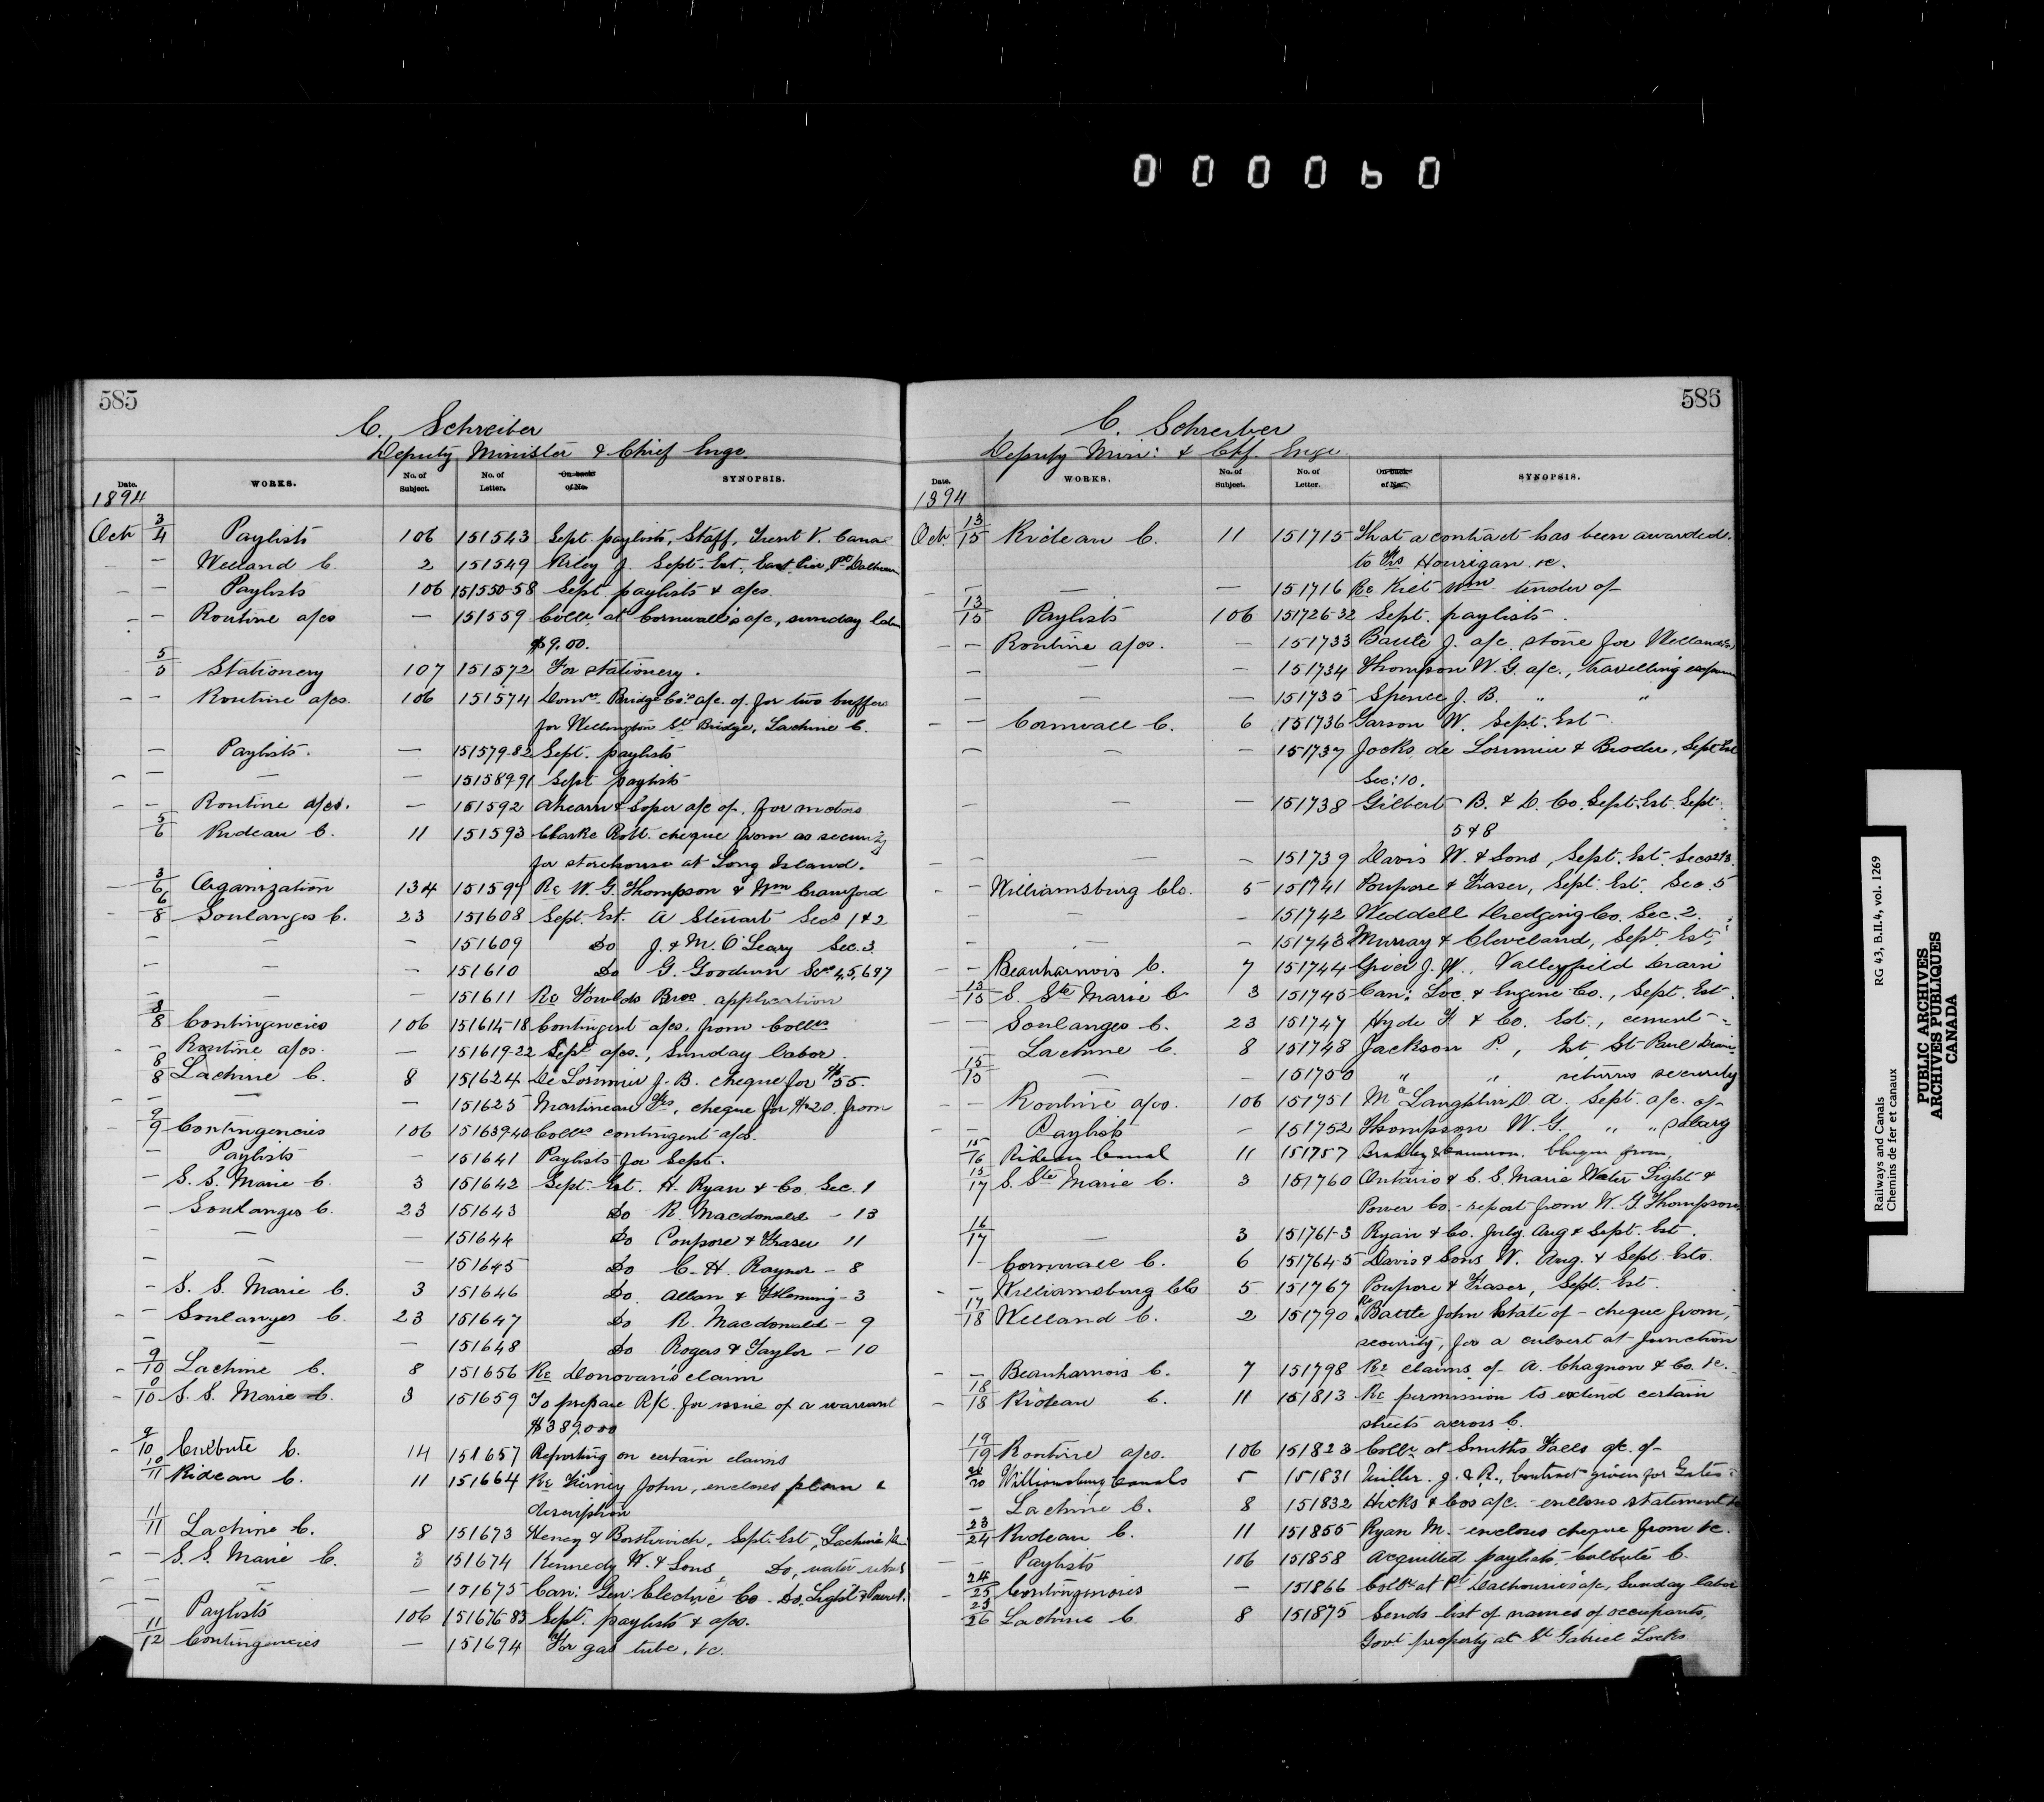 000060
585
C. Schreiber
Deputy Minister & Chief Engr
Date. WORKS. No. of Subject. No. of Letter. On back of No. SYNOPSIS.
1894
Oct 3/4 Paylists 106 151543 Sept paylists, Staff, Trent V. Cana
– – Welland C. 2 151549 Riley J. Sept. Est. East Pier, Pt Dalhousie
– – Paylists 106 151550-58 Sept paylists & a/cs.
– – Routine a/cs – 151559 Collr at Cornwall's a/c, sunday labor
$9.00.
5/5 Stationery 107 151572 For stationery.
– – Routine a/cs. 106 151574 Domn. Bridge Co's a/c. of for two buffers
for Wellington St Bridge, Lachine C.
– Paylists. – 151579-82 Sept. paylists
– – – – 151589-91 Sept paylists
– – Routine a/cs. – 151592 Ahearn & Soper a/c of, for motors
5/6 Rideau C. 11 151593 Clarke Robt. cheque from as security
for storehouse at Long Island.
– 3/6 Organization 134 151594 Re W. G. Thompson & Wm Crawford
– 6/8 Soulanges C. 23 151608 Sept. Est. A Stewart Secs 1 & 2
– – – 151609 Do J. & M. O'Leary Sec. 3
– – – 151610 Do G. Goodwin Secs 4,5,6&7
– – – 151611 Re Fowlds Bros. application
8/8 Contingencies 106 151614-18 Contingent a/cs. from Collrs
– – Routine a/cs. – 151619-22 Sept a/cs., Sunday labor.
8/8 Lachine C. 8 151624 De Lorimier J. B. cheque for $55.
– – – – 151625 Martineau Frs, cheque for $20. from
– 9/9 Contingencies 106 151639-40 Collrs contingent a/cs.
– Paylists – 151641 Paylists for Sept.
– S. S. Marie C. 3 151642 Sept. Est. H. Ryan & Co. Sec. 1
– Soulanges C. 23 151643 Do R. Macdonald – 13
– – – 151644 Do Poupore & Fraser 11
– – – 151645 Do C. H. Raynor – 8
– S. S. Marie C. 3 151646 Do. Allan & Fleming – 3
– – Soulanges C. 23 151647 Do R. Macdonald – 9
– – – 151648 Do Rogers & Taylor – 10
– 9/10 Lachine C. 8 151656 Re Donovan's claim
– /10 S. S. Marie C. 3 151659 To prepare R/C. for issue of a warrant
$389,000
– 9/10 Culbute C. 14 151657 Reporting on certain claims
10/11 Rideau C. 11 151664 Re Tierney John, encloses plan &
description
11/11 Lachine C. 8 151673 Heney & Borthwick, Sept. Est, Lachine
– – S. S. Marie C. 3 151674 Kennedy W. & Sons, Do, water
– – – – 151675 Can: Gen: Electric Co – Do. Light & Power.
– – Paylists 106 151676-83 Sept. paylists & a/cs.
11/12 Contingencies – 151694 For gas tube, &c.
586
C. Schreiber
Deputy Min: & Chf Engr
Date. WORKS. No. of Subject. No. of Letter. On back of No. SYNOPSIS.
1894
Oct. 13/15 Rideau C. 11 151715 That a contract has been awarded
to Hourigan &c.
– – – – 151716 Re Kiet Wm tender of
13/15 Paylists 106 151726-32 Sept. paylists.
– – Routine a/cs. – 151733 Battle J. a/c. stone for Welland C.
– – – 151734 Thompson W. G. a/c., travelling expenses
– – – 151735 Spence J. B. " "
– – Cornwall C. 6 151736 Garson W. Sept. Est
– – – 151737 Jocks, de Lorimier & Broder, Sept Est
Sec: 10.
– – – 151738 Gilbert B. & D. Co. Sept. Est. Sept
5 & 8
– – – 151739 Davis W. & Sons, Sept. Est. Secs 2 & 3.
– – Williamsburg Cls. 5 151741 Poupore & Fraser, Sept. Est. Sec. 5
– – 151742 Weddell Dredging Co. Sec. 2.
– – – 151743 Murray & Cleveland, Sept. Est.
– – Beauharnois C. 7 151744 Spier J. W., Valleyfield
13/15 S. Ste Marie C. 3 151745 Can: Loc. & Engine Co., Sept. Est.
– – Soulanges C. 23 151747 Hyde F. & Co. Est., cement
– Lachine C. 8 151748 Jackson P., Est, St Paul Drain
15/15 – – 151750 " " returns security
– – Routine a/cs. 106 151751 McLaughlin D. A. Sept. a/c. of
– – Paylists – 151752 Thompson W. G. " " salary
15/16 Rideau Canal 11 151757 Bradley & Cameron. Cheque from,
15/17 S. Ste Marie C. 3 151760 Ontario & S. S. Marie Water Light &
Power Co. – report from W. G. Thompson
16/17 – 3 151761-3 Ryan & Co. July, Aug & Sept. Est.
– Cornwall C. 6 151764-5 Davis & Sons W. Aug. & Sept. Ests.
– – Williamsburg Cls 5 151767 Poupore & Fraser, Sept. Est.
17/18 Welland C. 2 151790 Re Battle John Estate of – cheque from,
security, for a culvert at Junction
– – Beauharnois C. 7 151798 Re claims of A. Chagnon & Co. &c.
– 18/18 Rideau C. 11 151813 Re permission to extend certain
streets across C.
19/19 Routine a/cs. 106 151823 Collr at Smiths Falls a/c. of
/20 Williamsburg Canals 5 151831 Miller. J. & R., Contract given for Gates
– Lachine C. 8 151832 Hicks & Co's a/c. – encloses statement
23/24 Rideau C. 11 151855 Ryan M. – encloses cheque from &c.
– – Paylists 106 151858 Acquitted paylists, Culbute C.
– 24/25 Contingencies – 151866 Collr at Pt Dalhousie's a/c, Sunday labor
23/26 Lachine C. 8 151875 Sends list of names of occupants,
Govt property at St Gabriel Locks
Railways and Canals RG 43, B.II.4, vol. 1269
Chemins de fer et canaux
PUBLIC ARCHIVES
ARCHIVES PUBLIQUES
CANADA